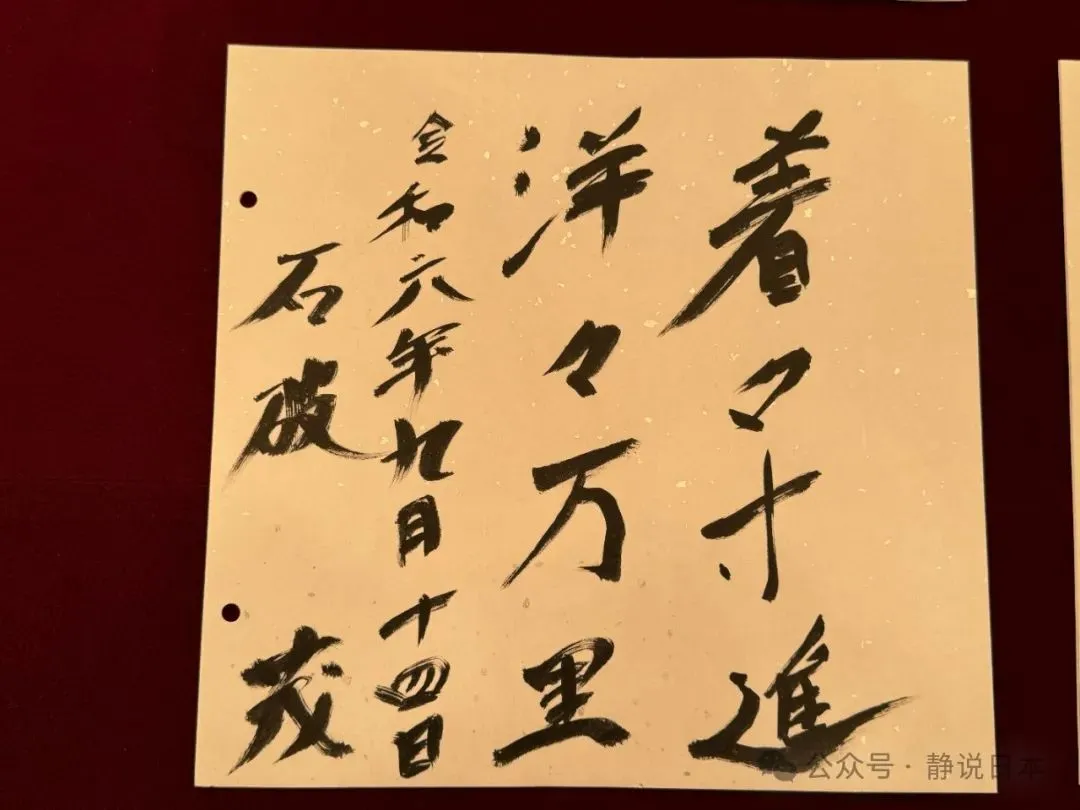 着々寸進
洋々万里
令和六年九月十四日
石破茂
公众号·静说日本